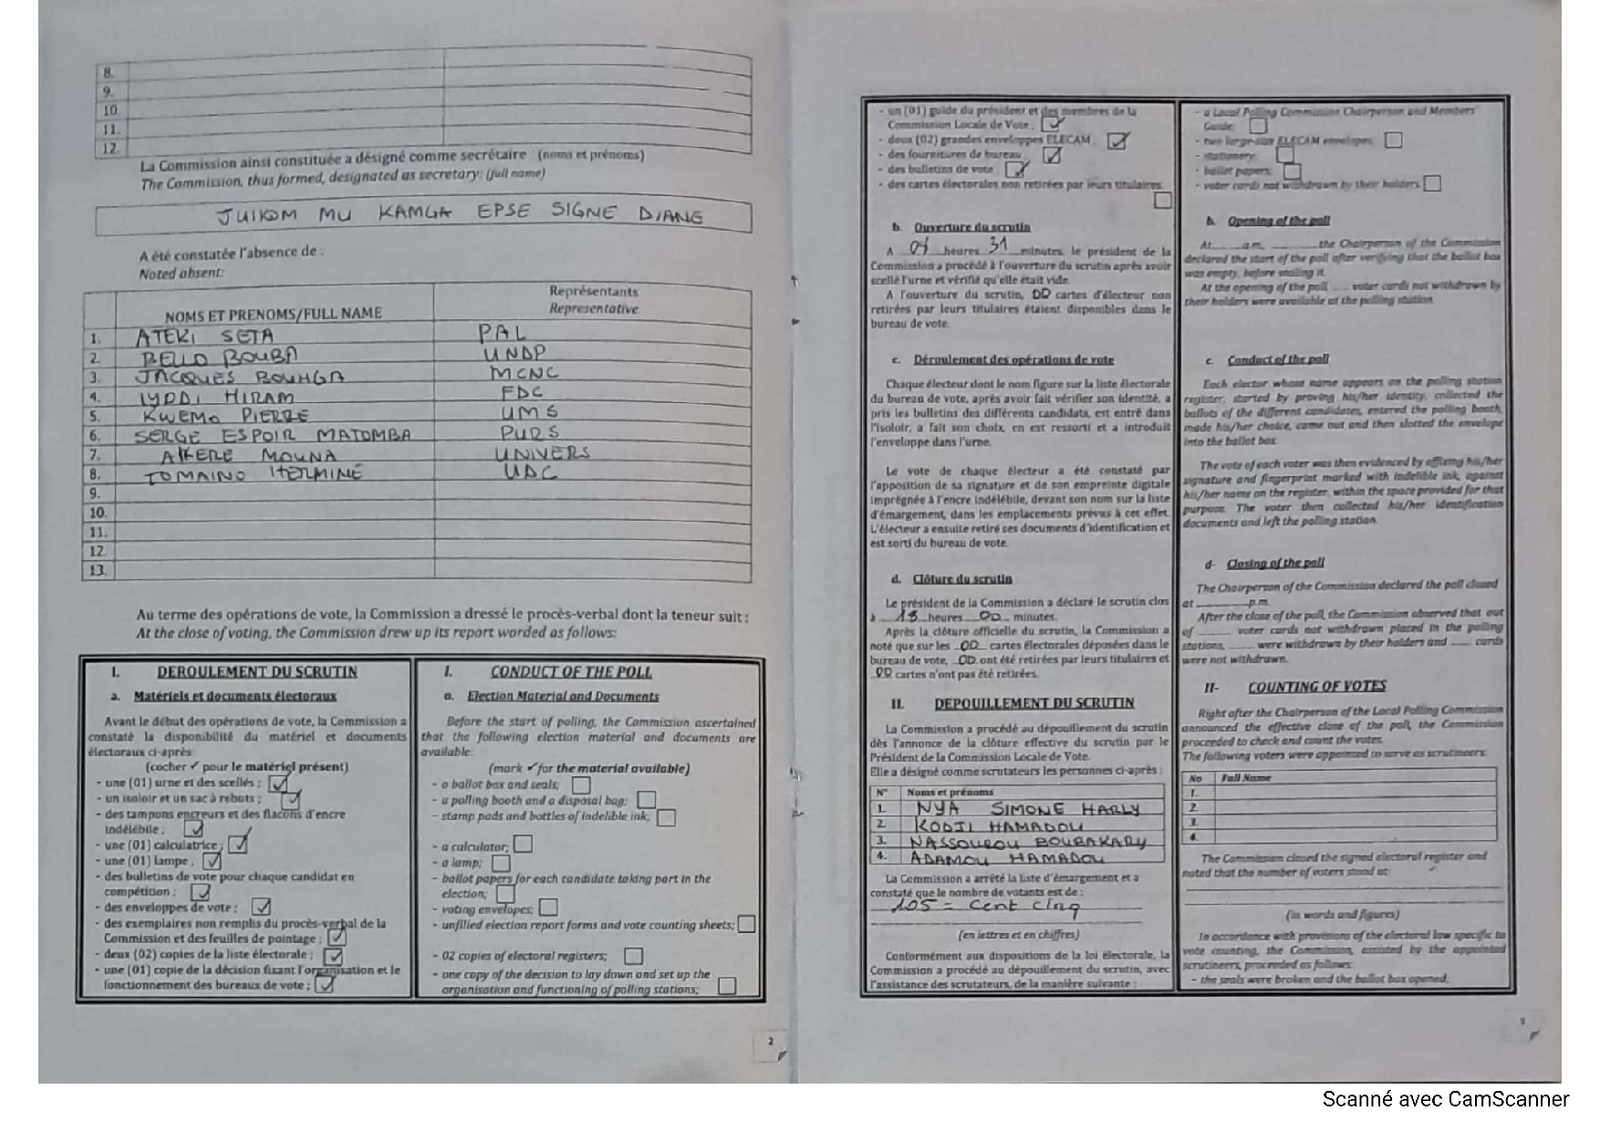 8.
9.
10
11.
12.
La Commission ainsi constituée a désigné comme secrétaire : (noms et prénoms)
The Commission, thus formed, designated as secretary: (full name)
JUIKOM MU KAMGA EPSE SIGNE DIANE
A été constatée l'absence de :
Noted absent:
NOMS ET PRENOMS/FULL NAME
Représentants
Representative
1. ATEKI SETA PAL
2. BELLO BOUBA UNDP
3. JACQUES BOUHGA MCNC
4. IYODI HIRAM FDC
5. KWEMO PIERRE UMS
6. SERGE ESPOIR MATOMBA PURS
7. AKERE MOUNA UNIVERS
8. TOMAINO HERMINE UDC
9.
10.
11.
12.
13.
Au terme des opérations de vote, la Commission a dressé le procès-verbal dont la teneur suit :
At the close of voting, the Commission drew up its report worded as follows:
I. DEROULEMENT DU SCRUTIN
a. Matériels et documents électoraux
Avant le début des opérations de vote, la Commission a
constaté la disponibilité du matériel et documents
électoraux ci-après
(cocher ✓ pour le matériel présent)
- une (01) urne et des scellés ; ☑
- un isoloir et un sac à rebuts ; ☑
- des tampons encreurs et des flacons d'encre
indélébile ; ☑
- une (01) calculatrice ; ☑
- une (01) lampe ; ☑
- des bulletins de vote pour chaque candidat en
compétition ; ☑
- des enveloppes de vote ; ☑
- des exemplaires non remplis du procès-verbal de la
Commission et des feuilles de pointage ; ☑
- deux (02) copies de la liste électorale ; ☑
- une (01) copie de la décision fixant l'organisation et le
fonctionnement des bureaux de vote ; ☑
I. CONDUCT OF THE POLL
a. Election Material and Documents
Before the start of polling, the Commission ascertained
that the following election material and documents are
available:
(mark ✓ for the material available)
- a ballot box and seals; ☐
- a polling booth and a disposal bag; ☐
- stamp pads and bottles of indelible ink; ☐
- a calculator; ☐
- a lamp; ☐
- ballot papers for each candidate taking part in the
election; ☐
- voting envelopes; ☐
- unfilled election report forms and vote counting sheets; ☐
- 02 copies of electoral registers; ☐
- one copy of the decision to lay down and set up the
organisation and functioning of polling stations; ☐
2
- un (01) guide du président et des membres de la
Commission Locale de Vote ; ☑
- deux (02) grandes enveloppes ELECAM ☑
- des fournitures de bureau ☑
- des bulletins de vote ; ☑
- des cartes électorales non retirées par leurs titulaires.
☐
b. Ouverture du scrutin
A heures 31 minutes, le président de la
Commission a procédé à l'ouverture du scrutin après avoir
scellé l'urne et vérifié qu'elle était vide.
A l'ouverture du scrutin, 00 cartes d'électeur non
retirées par leurs titulaires étaient disponibles dans le
bureau de vote.
c. Déroulement des opérations de vote
Chaque électeur dont le nom figure sur la liste électorale
du bureau de vote, après avoir fait vérifier son identité, a
pris les bulletins des différents candidats, est entré dans
l'isoloir, a fait son choix, en est ressorti et a introduit
l'enveloppe dans l'urne.
Le vote de chaque électeur a été constaté par
l'apposition de sa signature et de son empreinte digitale
imprégnée à l'encre indélébile, devant son nom sur la liste
d'émargement, dans les emplacements prévus à cet effet.
L'électeur a ensuite retiré ses documents d'identification et
est sorti du bureau de vote.
d. Clôture du scrutin
Le président de la Commission a déclaré le scrutin clos
à 18 heures 00 minutes.
Après la clôture officielle du scrutin, la Commission a
noté que sur les 00 cartes électorales déposées dans le
bureau de vote, 00 ont été retirées par leurs titulaires et
00 cartes n'ont pas été retirées.
II. DEPOUILLEMENT DU SCRUTIN
La Commission a procédé au dépouillement du scrutin
dès l'annonce de la clôture effective du scrutin par le
Président de la Commission Locale de Vote.
Elle a désigné comme scrutateurs les personnes ci-après :
N° Noms et prénoms
1. NYA SIMONE HARLY
2. KODJI HAMADOU
3. NASSOUROU BOUBAKARY
4. ADAMOU HAMADOU
La Commission a arrêté la liste d'émargement et a
constaté que le nombre de votants est de :
105 = Cent cinq
(en lettres et en chiffres)
Conformément aux dispositions de la loi électorale, la
Commission a procédé au dépouillement du scrutin, avec
l'assistance des scrutateurs, de la manière suivante :
- a Local Polling Commission Chairperson and Members'
Guide; ☐
- two large-size ELECAM envelopes; ☐
- stationery; ☐
- ballot papers; ☐
- voter cards not withdrawn by their holders ☐
b. Opening of the poll
At......a.m, ........the Chairperson of the Commission
declared the start of the poll after verifying that the ballot box
was empty, before sealing it.
At the opening of the poll ..... voter cards not withdrawn by
their holders were available at the polling station.
c. Conduct of the poll
Each elector whose name appears on the polling station
register, started by proving his/her identity, collected the
ballots of the different candidates, entered the polling booth,
made his/her choice, came out and then slotted the envelope
into the ballot box.
The vote of each voter was then evidenced by affixing his/her
signature and fingerprint marked with indelible ink, against
his/her name on the register, within the space provided for that
purpose. The voter then collected his/her identification
documents and left the polling station.
d- Closing of the poll
The Chairperson of the Commission declared the poll closed
at ............p.m.
After the close of the poll, the Commission observed that out
of ........ voter cards not withdrawn placed in the polling
stations, ...... were withdrawn by their holders and ..... cards
were not withdrawn.
II- COUNTING OF VOTES
Right after the Chairperson of the Local Polling Commission
announced the effective close of the poll, the Commission
proceeded to check and count the votes.
The following voters were appointed to serve as scrutineers:
No Full Name
1.
2.
3.
4.
The Commission closed the signed electoral register and
noted that the number of voters stood at:
(in words and figures)
In accordance with provisions of the electoral law specific to
vote counting, the Commission, assisted by the appointed
scrutineers, proceeded as follows:
- the seals were broken and the ballot box opened;
Scanné avec CamScanner